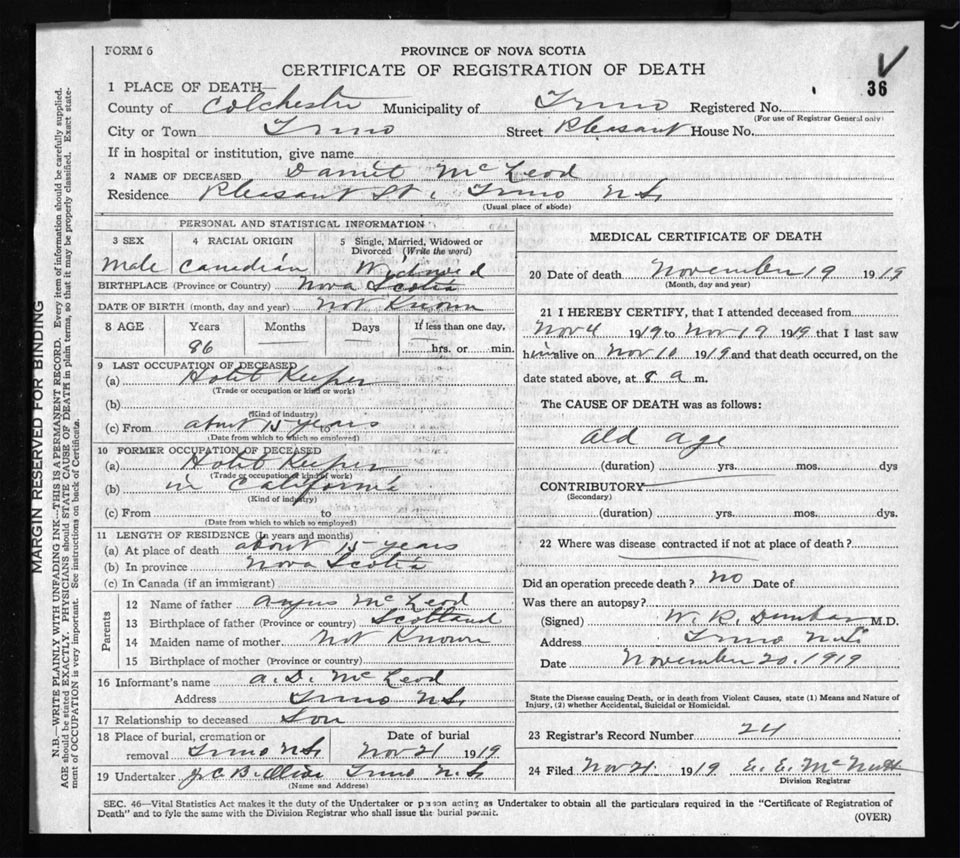 FORM 6
PROVINCE OF NOVA SCOTIA
CERTIFICATE OF REGISTRATION OF DEATH
36
1 PLACE OF DEATH—
County of Colchester Municipality of Truro Registered No.
(For use of Registrar General only)
City or Town Truro Street Pleasant House No.
If in hospital or institution, give name
2 NAME OF DECEASED Daniel McLeod
Residence Pleasant St. Truro N.S.
(Usual place of abode)
PERSONAL AND STATISTICAL INFORMATION
3 SEX 4 RACIAL ORIGIN 5 Single, Married, Widowed or
Divorced (Write the word)
Male Canadian Widowed
BIRTHPLACE (Province or Country) Nova Scotia
DATE OF BIRTH (month, day and year) Not Known
8 AGE Years Months Days If less than one day,
86 — — hrs. or min.
9 LAST OCCUPATION OF DECEASED
(a) Hotel Keeper
(Trade or occupation or kind or work)
(b)
(Kind of industry)
(c) From about 15 years
(Date from which to which so employed)
10 FORMER OCCUPATION OF DECEASED
(a) Hotel Keeper
(Trade or occupation or kind of work)
(b) in California
(Kind of industry)
(c) From to
(Date from which to which so employed)
11 LENGTH OF RESIDENCE (In years and months)
(a) At place of death about 15 years
(b) In province Nova Scotia
(c) In Canada (if an immigrant)
Parents
12 Name of father Angus McLeod
13 Birthplace of father (Province or country) Scotland
14 Maiden name of mother Not Known
15 Birthplace of mother (Province or country)
16 Informant's name A. D. McLeod
Address Truro N.S.
17 Relationship to deceased Son
18 Place of burial, cremation or Date of burial
removal Truro N.S. Nov 21 1919
19 Undertaker Truro N.S.
(Name and Address)
MEDICAL CERTIFICATE OF DEATH
20 Date of death November 19 1919
(Month, day and year)
21 I HEREBY CERTIFY, that I attended deceased from
Nov 4 1919 to Nov 19 1919 that I last saw
him alive on Nov 10 1919 and that death occurred, on the
date stated above, at 8 a m.
The CAUSE OF DEATH was as follows:
Old age
(duration) yrs. mos. dys
CONTRIBUTORY
(Secondary)
(duration) yrs. mos. dys.
22 Where was disease contracted if not at place of death?
Did an operation precede death? no Date of
Was there an autopsy?
(Signed) W. R. Dunbar M.D.
Address Truro N.S.
Date November 20. 1919
State the Disease causing Death, or in death from Violent Causes, state (1) Means and Nature of
Injury, (2) whether Accidental, Suicidal or Homicidal.
23 Registrar's Record Number 24
24 Filed Nov 21. 1919 E. E. McNutt
Division Registrar
SEC. 46—Vital Statistics Act makes it the duty of the Undertaker or person acting as Undertaker to obtain all the particulars required in the "Certificate of Registration of
Death" and to fyle the same with the Division Registrar who shall issue the burial permit.
(OVER)
MARGIN RESERVED FOR BINDING
N.B.—WRITE PLAINLY WITH UNFADING INK—THIS IS A PERMANENT RECORD. Every item of information should be carefully supplied.
AGE should be stated EXACTLY. PHYSICIANS should STATE CAUSE OF DEATH in plain terms, so that it may be properly classified. Exact state-
ment of OCCUPATION is very important. See instructions on back of Certificate.